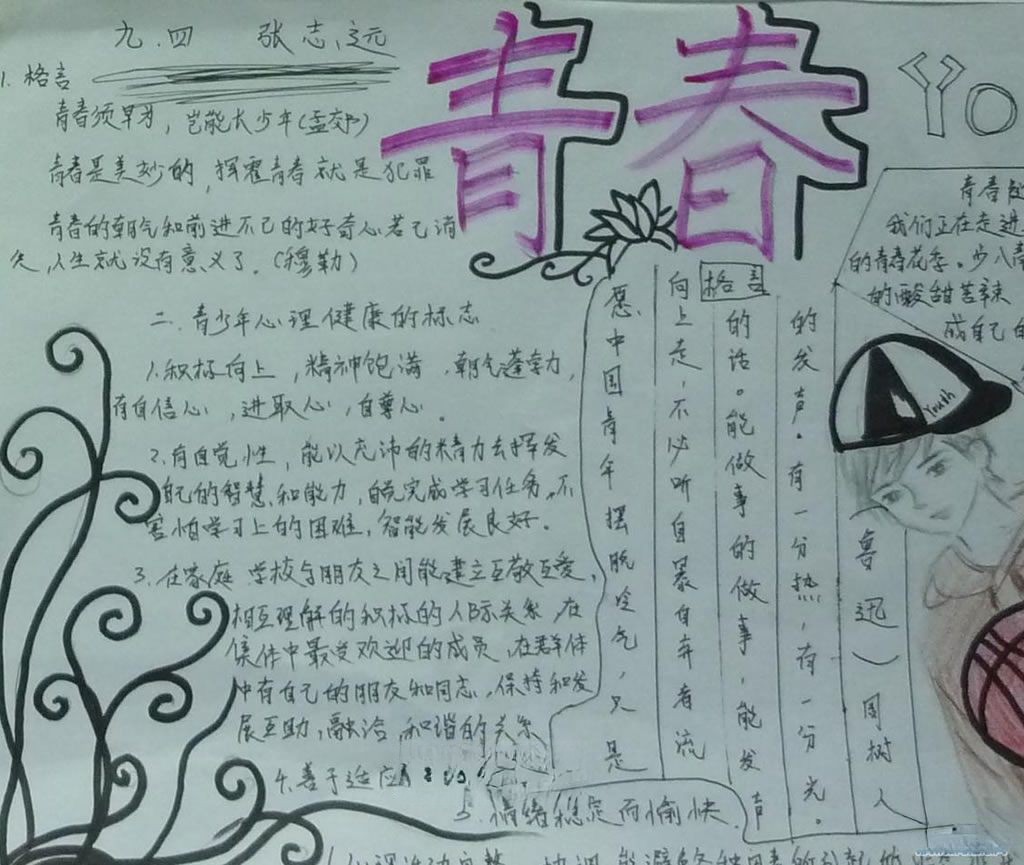 九.四 张志远
青春
Yo
1.格言
青春须早为，岂能长少年(孟郊)
青春是美妙的，挥霍青春就是犯罪
青春的朝气和前进不已的好奇心若已消
失，人生就没有意义了。(穆勒)
二.青少年心理健康的标志
1.积极向上，精神饱满，朝气蓬勃，
有自信心，进取心，自尊心。
2.有自觉性，能以充沛的精力去挥发
自己的智慧和能力，自觉完成学习任务，不
害怕学习上的困难，智能发展良好。
3.在家庭 学校与朋友之间能建立互敬互爱，
相互理解的积极的人际关系，在
集体中最受欢迎的成员，在群体
中有自己的朋友和同志，保持和发
展互助，融洽 和谐的关系
4.善于适应
5.情绪稳定而愉快.
格言
愿中国青年摆脱冷气，只是
向上走，不必听自暴自弃者流
的话。能做事的做事，能发声
的发声。有一分热，有一分光。
(鲁迅)周树人
青春
我们正在走进
的青春花季。少
的酸甜苦辣
成自己
Youth
心理活动